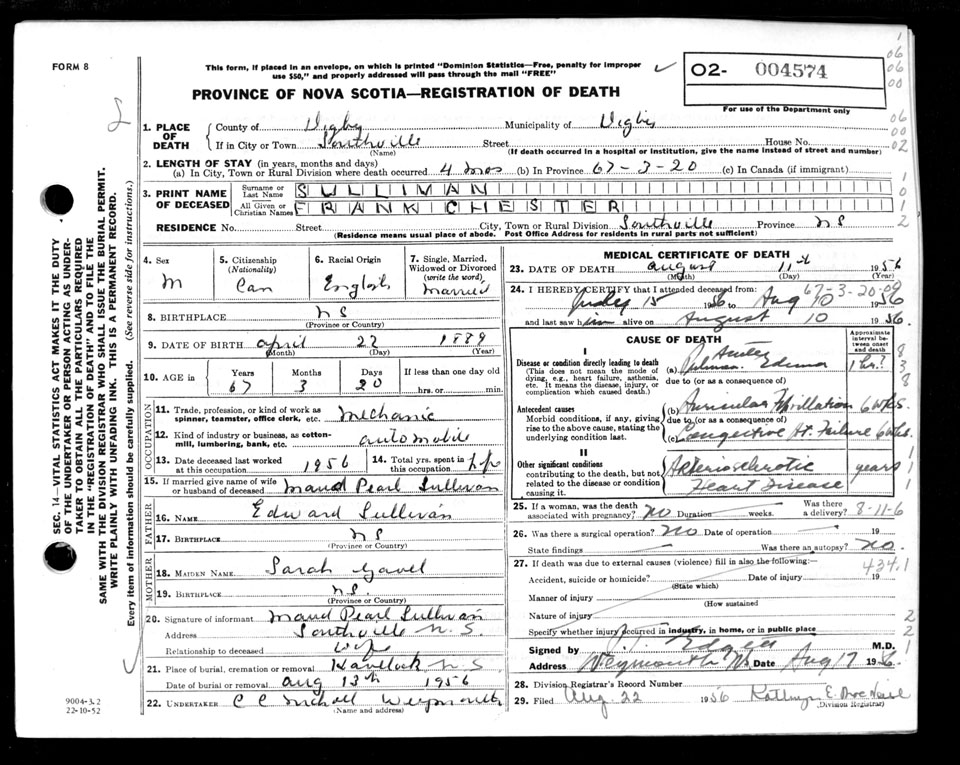 FORM 8
This form, if placed in an envelope, on which is printed "Dominion Statistics—Free, penalty for improper
use $50," and properly addressed will pass through the mail "FREE"
PROVINCE OF NOVA SCOTIA—REGISTRATION OF DEATH
02- 004574
For use of the Department only
1. PLACE OF DEATH { County of Digby Municipality of Digby
If in City or Town Southville Street House No.
(Name) (If death occurred in a hospital or institution, give the name instead of street and number)
2. LENGTH OF STAY (in years, months and days)
(a) In City, Town or Rural Division where death occurred 4 mos (b) In Province 67-3-20 (c) In Canada (if immigrant)
3. PRINT NAME OF DECEASED { Surname or Last Name SULLIVAN
All Given or Christian Names FRANK CHESTER
RESIDENCE No. Street City, Town or Rural Division Southville Province NS
(Residence means usual place of abode. Post Office Address for residents in rural parts not sufficient)
4. Sex M
5. Citizenship (Nationality) Can
6. Racial Origin English
7. Single, Married, Widowed or Divorced (write the word) Married
8. BIRTHPLACE NS
(Province or Country)
9. DATE OF BIRTH April 22 1889
(Month) (Day) (Year)
10. AGE in { Years 67 Months 3 Days 20 If less than one day old
hrs. or min.
OCCUPATION
11. Trade, profession, or kind of work as spinner, teamster, office clerk, etc. Mechanic
12. Kind of industry or business, as cotten-mill, lumbering, bank, etc. automobile
13. Date deceased last worked at this occupation 1956
14. Total yrs. spent in this occupation
15. If married give name of wife or husband of deceased Maud Pearl Sullivan
FATHER
16. NAME Edward Sullivan
17. BIRTHPLACE NS
(Province or Country)
MOTHER
18. MAIDEN NAME Sarah Gavel
19. BIRTHPLACE NS.
(Province or Country)
20. Signature of informant Maud Pearl Sullivan
Address Southville N.S.
Relationship to deceased Wife
21. Place of burial, cremation or removal Havelock N S
Date of burial or removal Aug 13th 1956
22. UNDERTAKER C C Weymouth
(Name and address)
MEDICAL CERTIFICATE OF DEATH
23. DATE OF DEATH August 11th 1956
(Month) (Day) (Year)
67-3-20-09
24. I HEREBY CERTIFY that I attended deceased from:
July 15 1956 to Aug 10 1956
and last saw him alive on August 10 1956.
CAUSE OF DEATH
Approximate interval between onset and death
I
Disease or condition directly leading to death
(This does not mean the mode of dying, e.g., heart failure, asthenia, etc. It means the disease, injury, or complication which caused death.)
(a) Acute Pulmon. Edema 1 hr?
due to (or as a consequence of)
Antecedent causes
Morbid conditions, if any, giving rise to the above cause, stating the underlying condition last.
(b) Auricular Fibrillation 6 wks.
due to (or as a consequence of)
(c) Congestive Ht. Failure 6 wks.
II
Other significant conditions
contributing to the death, but not related to the disease or condition causing it.
Arteriosclerotic Heart Disease years
25. If a woman, was the death associated with pregnancy? NO Duration weeks. Was there a delivery? 8-11-6
26. Was there a surgical operation? NO Date of operation 19
State findings Was there an autopsy? NO.
27. If death was due to external causes (violence) fill in also the following: 434.1
Accident, suicide or homicide? Date of injury 19
(State which)
Manner of injury
(How sustained
Nature of injury
Specify whether injury occurred in industry, in home, or in public place
Signed by M.D.
Address Weymouth NS Date Aug 17 1956.
28. Division Registrar's Record Number
29. Filed Aug 22 1956 Kathryn E.
(Division Registrar)
SEC. 14—VITAL STATISTICS ACT MAKES IT THE DUTY
OF THE UNDERTAKER OR PERSON ACTING AS UNDER-
TAKER TO OBTAIN ALL THE PARTICULARS REQUIRED
IN THE "REGISTRATION OF DEATH" AND TO FILE THE
SAME WITH THE DIVISION REGISTRAR WHO SHALL ISSUE THE BURIAL PERMIT.
WRITE PLAINLY WITH UNFADING INK. THIS IS A PERMANENT RECORD.
Every item of information should be carefully supplied. (See reverse side for instructions.)
9004-3.2
22-10-52